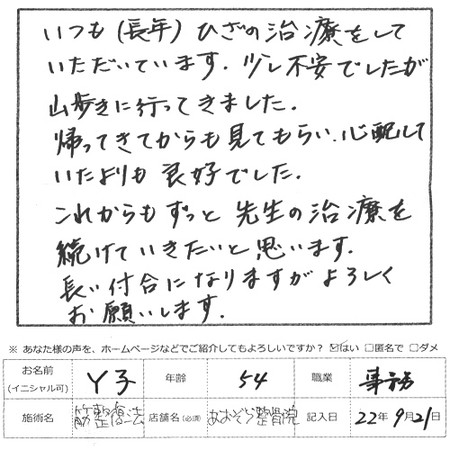 いつも(長年)ひざの治療をして
いただいています。少し不安でしたが
山歩きに行ってきました。
帰ってきてからも見てもらい、心配して
いたよりも良好でした。
これからもずっと先生の治療を
続けていきたいと思います。
長い付合になりますがよろしく
お願いします。
※ あなた様の声を、ホームページなどでご紹介してもよろしいですか？ ☑はい □匿名で □ダメ
お名前 (イニシャル可) Y子 年齢 54 職業 事務
施術名 筋整復法 店舗名(必須) あおぞら整骨院 記入日 22年 9月21日